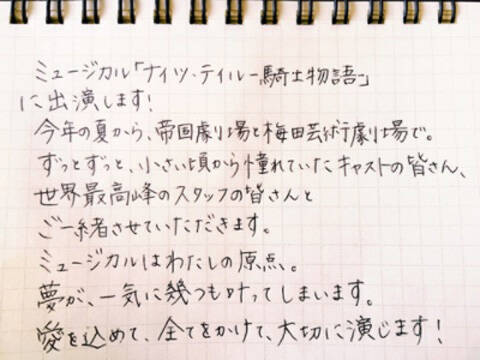 ミュージカル「ナイツ・テイルー騎士物語」
に出演します！
今年の夏から、帝国劇場と梅田芸術劇場で。
ずっとずっと、小さい頃から憧れていたキャストの皆さん、
世界最高峰のスタッフの皆さんと
ご一緒させていただきます。
ミュージカルはわたしの原点。
夢が、一気に幾つも叶ってしまいます。
愛を込めて、全てをかけて、大切に演じます！